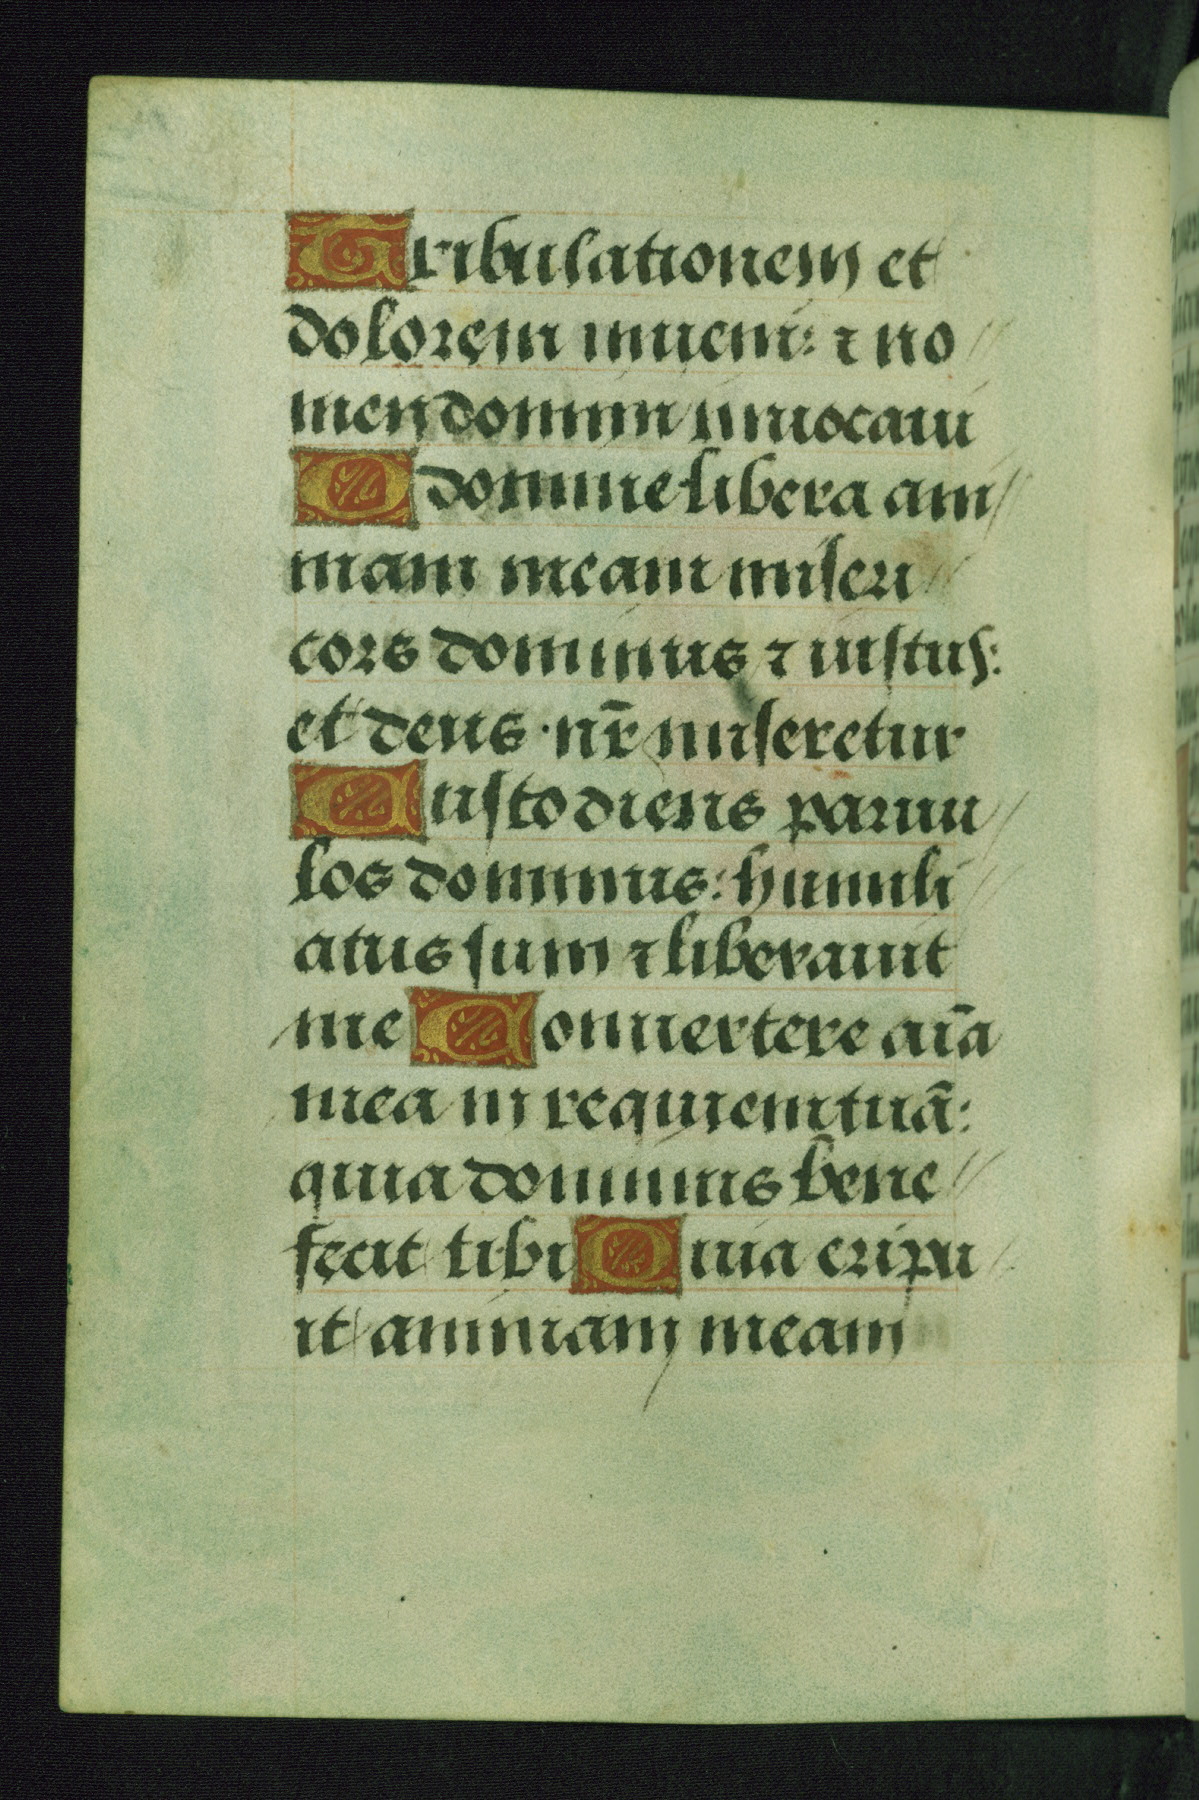 Tribulationem et
dolorem inueni: ⁊ no
men domini inuocaui
O domine libera ani
mam meam miseri
cors dominus ⁊ iustus:
et deus nr̄ miseretur
Custodiens paruu
los dominus: humili
atus sum ⁊ liberauit
me Conuertere aīa
mea in requiem tuā:
quia dominus bene
fecit tibi Quia eripu
it animam meam